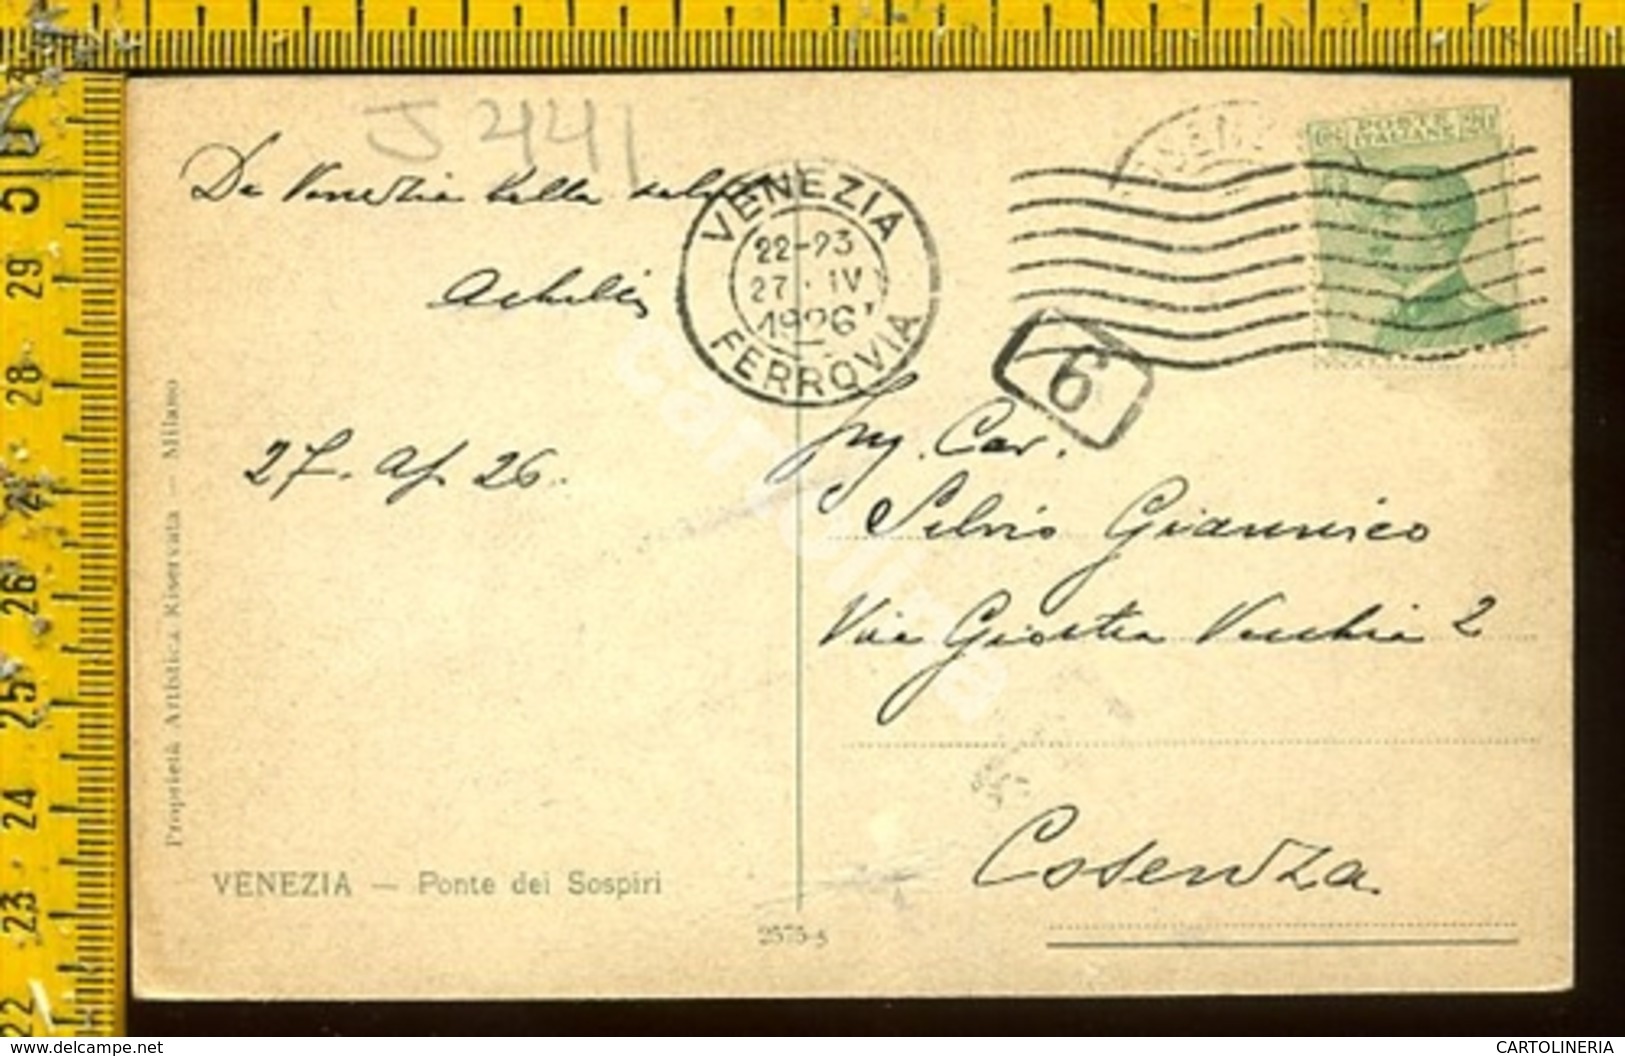 J 2441
Da Venezia bella
VENEZIA
22-23
27 · IV
1926
FERROVIA
POSTE
ITALIANE
6
27. Ap. 26.
Ing. Cav.
Silvio Giannico
Via Giostra Vecchia 2
Cosenza
Proprietà Artistica Riservata — Milano
VENEZIA — Ponte dei Sospiri
2575-5
cartolineria
29
28
27
26
25
24
23
22
www.delcampe.net
CARTOLINERIA